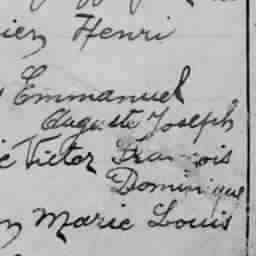 ien Henri
Emmanuel
Auguste Joseph
c Victor François
Dominique
n Marie Louis